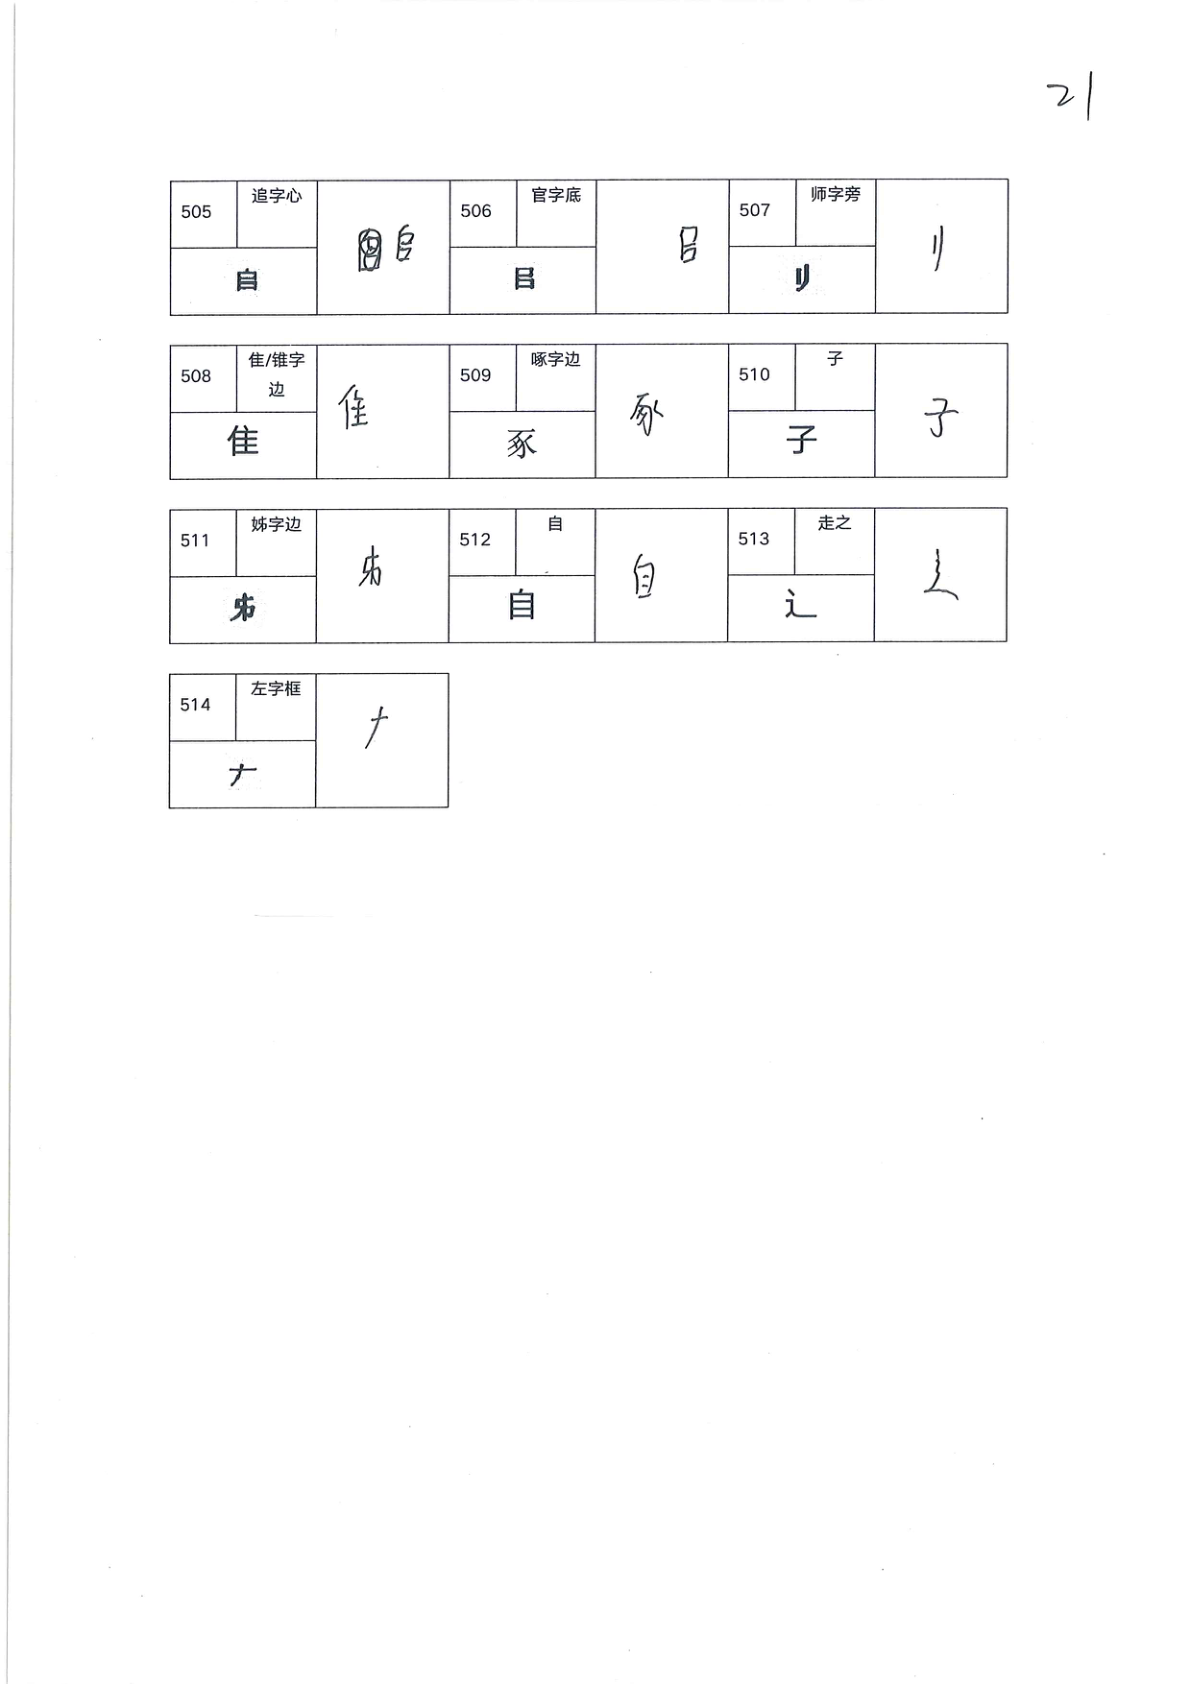 21
505 追字心 506 官字底 507 师字旁
𠂤 㠯 刂
𠂤 㠯 刂
508 隹/锥字边 509 啄字边 510 子
隹 豖 子
隹 豖 子
511 姊字边 512 自 513 走之
自 辶
自 辶
514 左字框
𠂇
𠂇